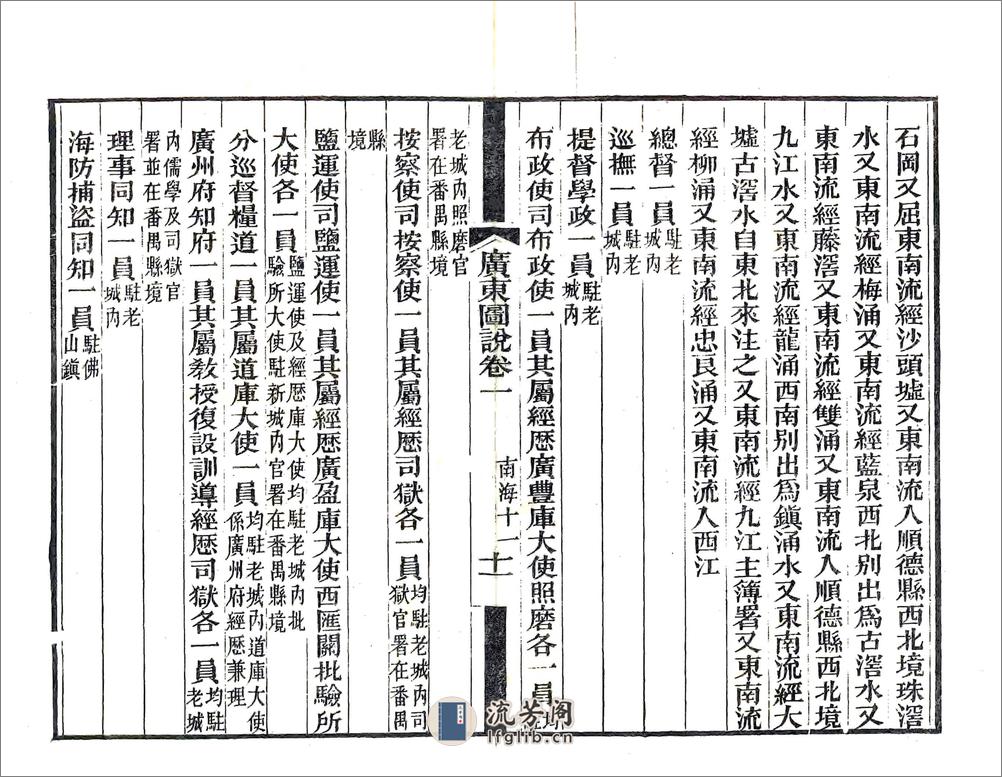 石岡又屈東南流經沙頭墟又東南流入順德縣西北境珠滘
水又東南流經梅涌又東南流經藍泉西北別出爲古滘水又
東南流經藤滘又東南流經雙涌又東南流入順德縣西北境
九江水又東南流經龍涌西南別出爲鎮涌水又東南流經大
墟古滘水自東北來注之又東南流經九江主簿署又東南流
經柳涌又東南流經忠良涌又東南流入西江
總督一員駐老城內
巡撫一員駐老城內
提督學政一員駐老城內
布政使司布政使一員其屬經歷廣豐庫大使照磨各一員均駐
廣東圖說卷一
南海十一
十一
老城內照磨官署在番禺縣境
按察使司按察使一員其屬經歷司獄各一員均駐老城內司獄官署在番禺
縣境
鹽運使司鹽運使一員其屬經歷廣盈庫大使西匯關批驗所
大使各一員鹽運使及經歷庫大使均駐老城內批驗所大使駐新城內官署在番禺縣境
分巡督糧道一員其屬道庫大使一員均駐老城內道庫大使係廣州府經歷兼理
廣州府知府一員其屬教授復設訓導經歷司獄各一員均駐老城
內儒學及司獄官署並在番禺縣境
理事同知一員駐老城內
海防捕盜同知一員駐佛山鎮
流芳阁
lfglib.cn